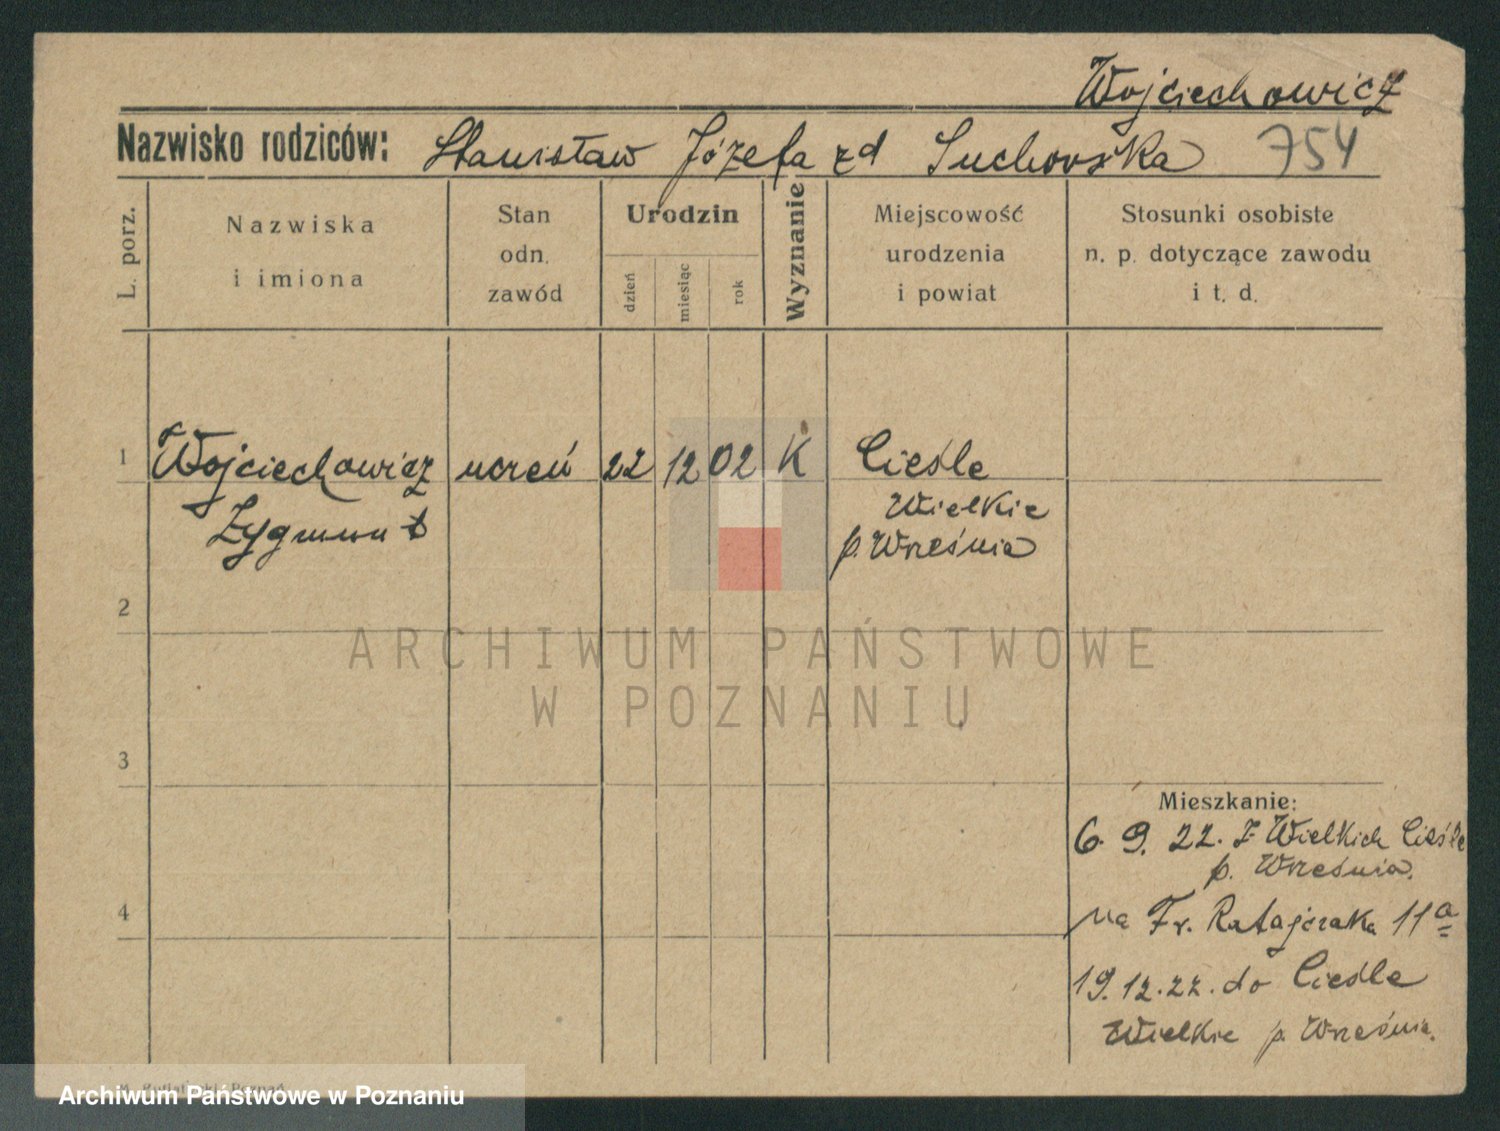 Wojciechowicz
Nazwisko rodziców: Stanisław Józefa zd Suchorska 754
L. porz.
Nazwiska
i imiona
Stan
odn.
zawód
Urodzin
dzień
miesiąc
rok
Wyznanie
Miejscowość
urodzenia
i powiat
Stosunki osobiste
n. p. dotyczące zawodu
i t. d.
1 Wojciechowicz uczeń 22 12 02 K Cieśle
Zygmunt
Wielkie
p. Września
2
ARCHIWUM PAŃSTWOWE
W POZNANIU
3
Mieszkanie:
6. 9. 22. z Wielkich Cieśle
p. Września.
4
na Fr. Ratajczaka 11a
19.12.22. do Cieśle
Wielkie p. Września.
Poznań
Archiwum Państwowe w Poznaniu